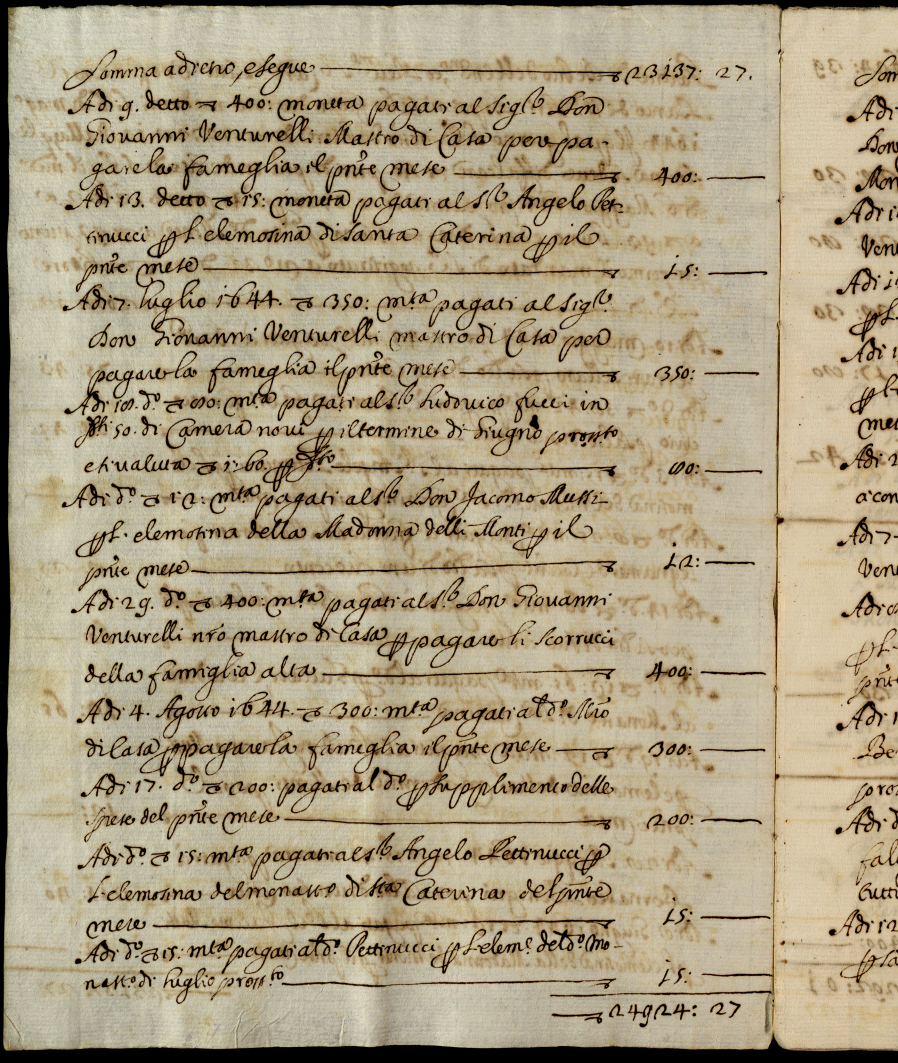 Somma adreto, e segue ▽ 23137: 27.
Adi 9. detto ▽ 400: moneta pagati al Sigre Don
Giovanni Venturelli Mastro di Casa per pa-
gare la fameglia il pnte mese ▽ 400:
Adi 13. detto ▽ 15: moneta pagati al Sre Angelo Pet-
tinucci p l'elemosina di Santa Caterina p il
pnte mese ▽ 15:
Adi 7. luglio 1644. ▽ 350: mta pagati al Sigre
Don Giovanni Venturelli mastro di Casa per
pagare la fameglia il pnte mese ▽ 350:
Adi 18. do ▽ 80: mta pagati al Sre Ludovico fucci in
50. di Camera novi p il termine di Giugno prossto
et ivaluta ▽ 1:60. p ▽ 80:
Adi do ▽ 12: mta pagati al Sre Don Jacomo Mussi
p l'elemosina della Madonna delli Monti p il
pnte mese ▽ 12:
Adi 29. do ▽ 400: mta pagati al Sre Don Giovanni
Venturelli nro mastro di Casa p pagare li scorrucci
della famiglia alta ▽ 400:
Adi 4. Agosto 1644. ▽ 300: mta pagati al do Mro
di Casa p pagare la fameglia il pnte mese ▽ 300:
Adi 17. do ▽ 200: pagati al do p supplimento delle
spese del pnte mese ▽ 200:
Adi do ▽ 15: mta pagati al Sre Angelo Pettinucci p
l'elemosina del monasto di Sta Caterina del pnte
mese ▽ 15:
Adi do ▽ 15: mta pagati al do Pettinucci p l'eleme del do mo-
nasto di luglio prossto ▽ 15:
▽ 24924: 27